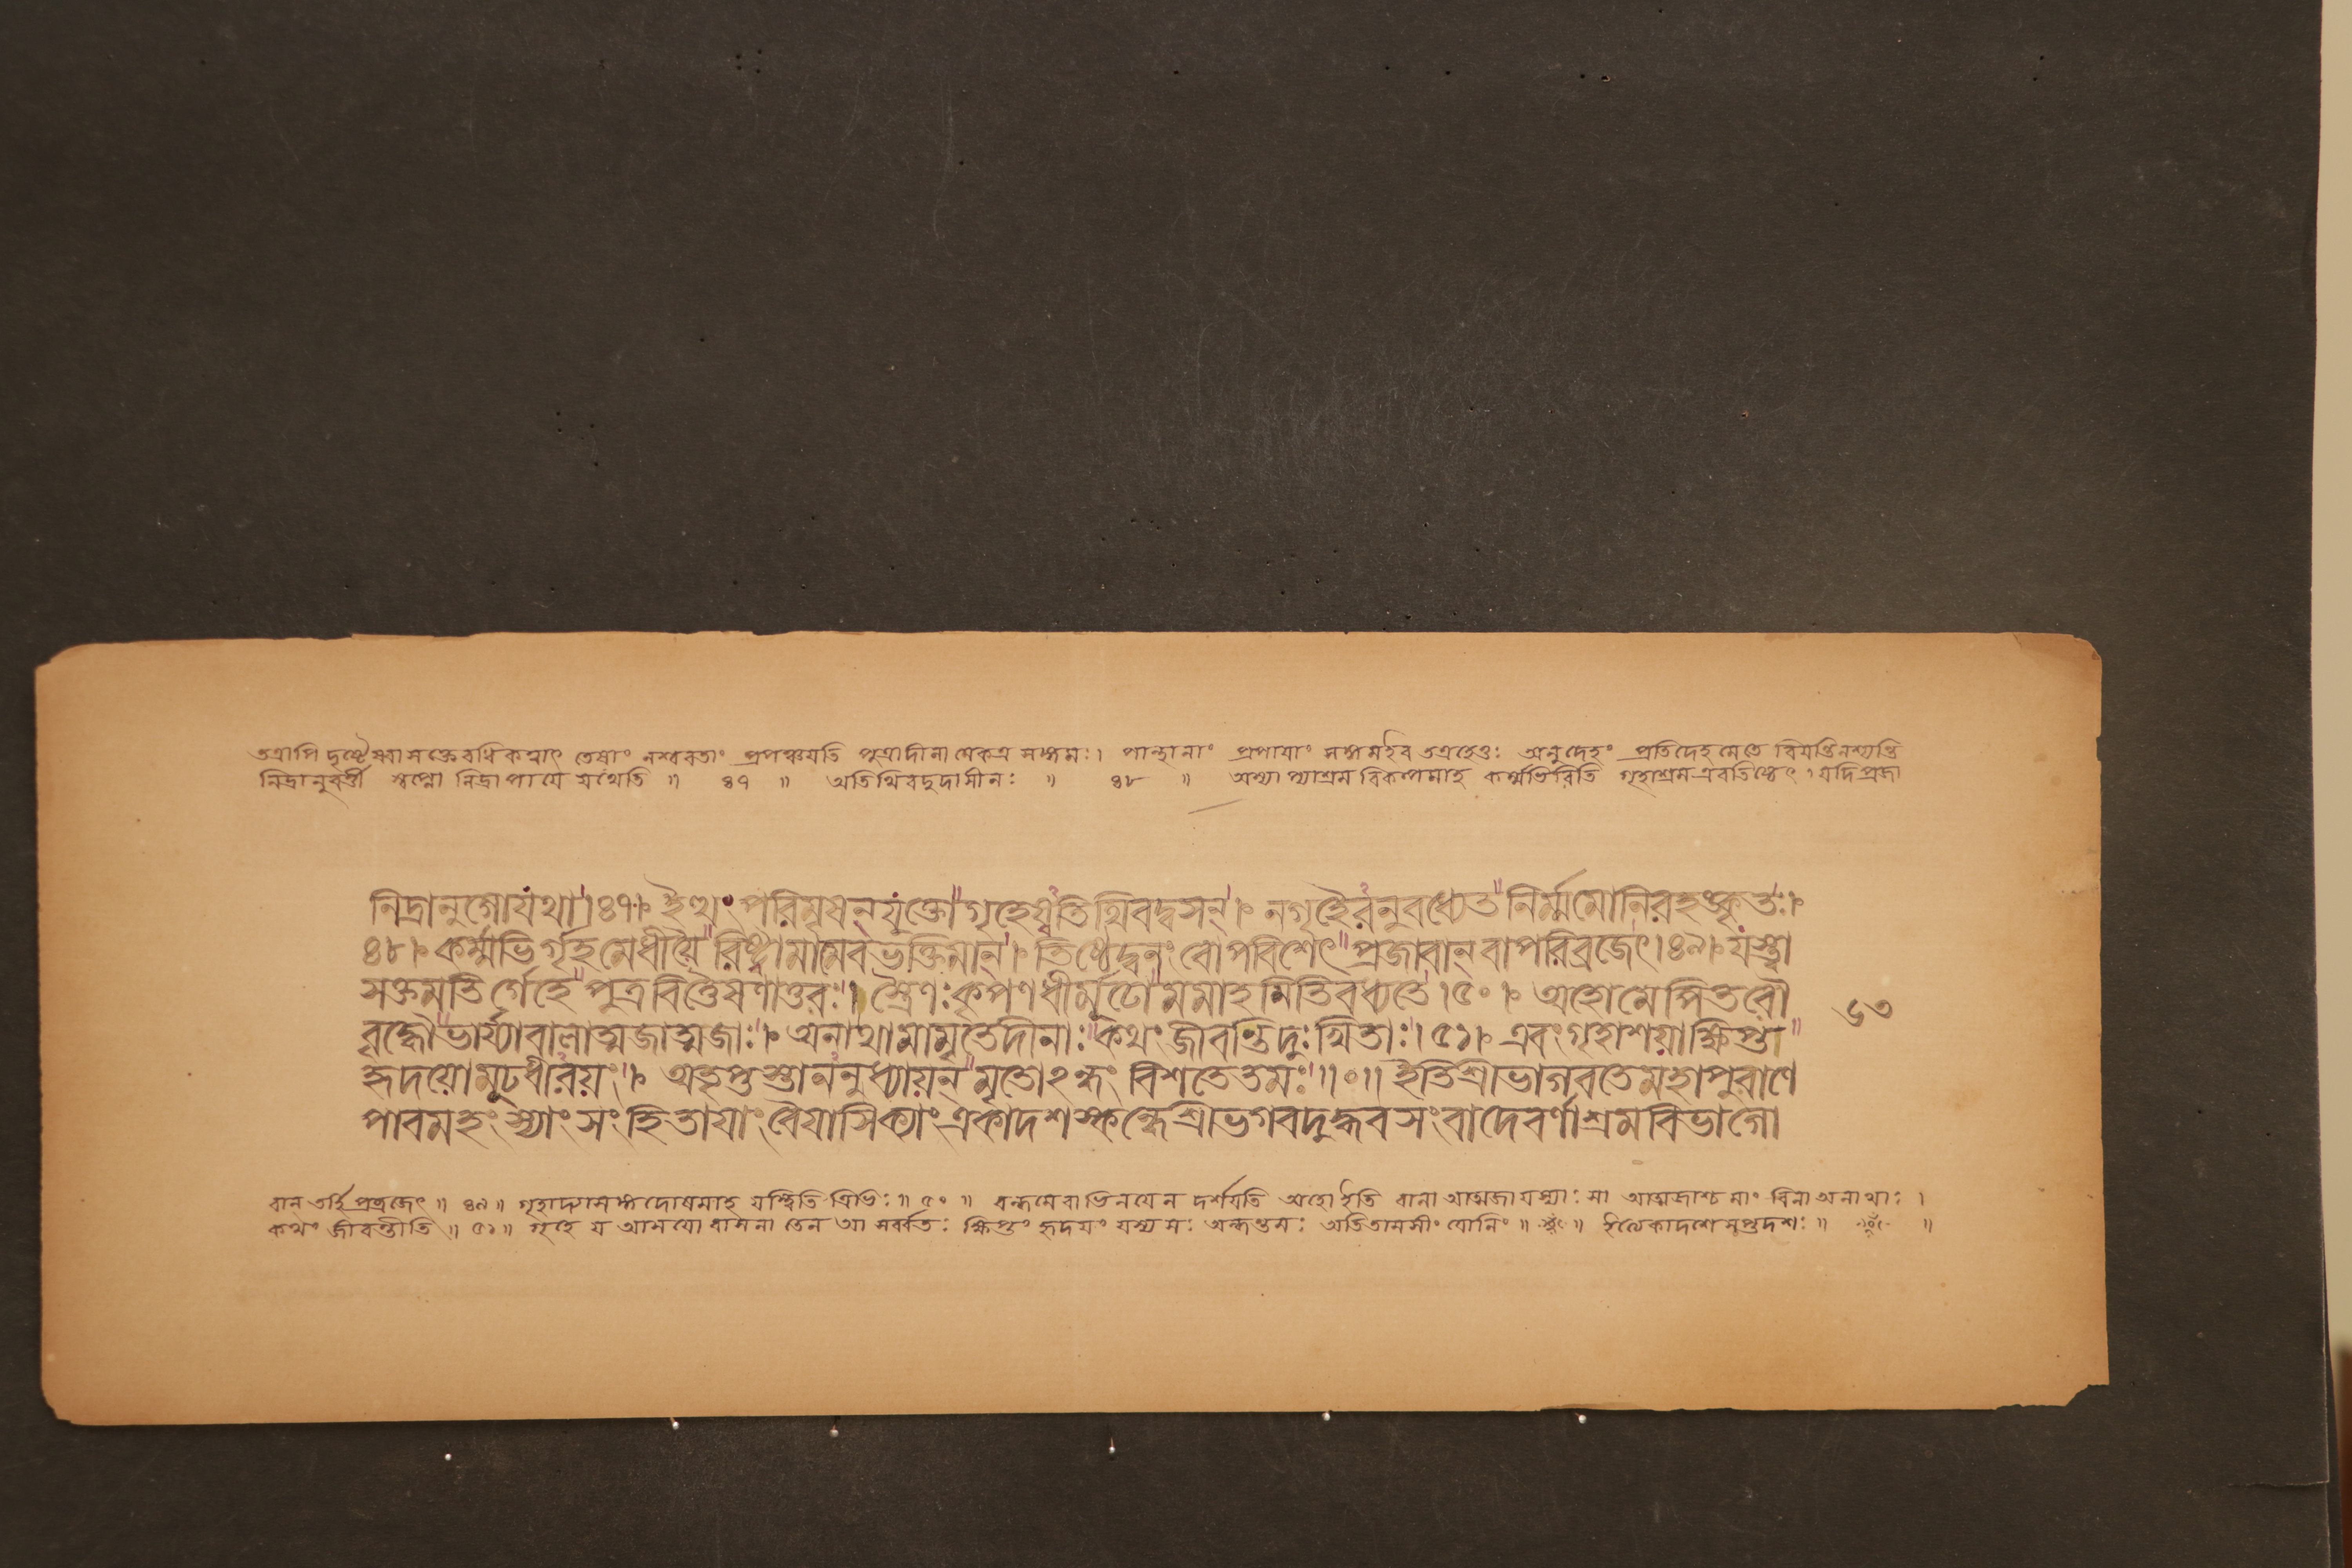 তত্রাপি দৃষ্টেষ্বাসক্তেরধিকত্বাৎ তেষাং নশ্বরতাং প্রপঞ্চয়তি পুত্রাদীনামেকত্র সঙ্গমঃ। পান্থানাং প্রপাযাং সঙ্গমইব তত্রহেতুঃ অনুদেহং প্রতিদেহমেতে বিযন্তিনশ্যন্তি
নিদ্রানুবর্ত্তী স্বপ্নো নিদ্রাপাযে যথেতি ॥ ৪৭ ॥ অতিথিবদুদাসীনঃ ॥ ৪৮ ॥ অস্যাপ্যাশ্রমবিকল্পমাহ কর্ম্মভিরিতি গৃহাশ্রমএবতিষ্ঠেৎ। যদিপ্রজা
নিদ্রানুগোযথা।৪৭। ইত্থং পরিমৃষন্ যুক্তো গৃহেষ্বতিথিবদ্বসন্। নগৃহৈরনুবধ্যেত নির্ম্মমোনিরহংকৃতঃ।
৪৮। কর্ম্মভির্গৃহমেধীয়ৈরিষ্ট্বামামেবভক্তিমান্। তিষ্ঠেদ্বনং বোপবিশেৎ প্রজাবান্ বাপরিব্রজেৎ।৪৯। যস্ত্বা
সক্তমতির্গেহে পুত্রবিত্তৈষণাতুরঃ। স্ত্রৈণঃকৃপণধীর্মূঢো মমাহমিতিবধ্যতে।৫০। অহোমেপিতরৌ
বৃদ্ধৌভার্য্যাবালাত্মজাত্মজাঃ। অনাথামামৃতেদীনাঃ কথং জীবন্তিদুঃখিতাঃ।৫১। এবংগৃহাশয়াক্ষিপ্ত
৬৩
হৃদয়োমূঢধীরয়ং। অতৃপ্তস্তাননুধ্যায়ন্ মৃতোঽন্ধং বিশতেতমঃ॥০॥ ইতিশ্রীভাগবতেমহাপুরাণে
পাবমহংস্যাং সংহিতাযাং বৈযাসিক্যাং একাদশস্কন্ধেশ্রীভগবদুদ্ধবসংবাদেবর্ণাশ্রমবিভাগো
বান্ তর্হি প্রব্রজেৎ ॥ ৪৯ ॥ গৃহাদ্যাসঙ্গদোষমাহ যস্ত্বিতি ত্রিভিঃ ॥ ৫০ ॥ বন্ধমেবাভিনযেন দর্শযতি অহো ইতি বালা আত্মজা যস্যাঃ সা আত্মজাশ্চ মাং বিনা অনাথাঃ।
কথং জীবন্তীতি ॥ ৫১ ॥ গৃহে য আশযো বাসনা তেন আ সর্ব্বতঃ ক্ষিপ্তং হৃদযং যস্য সঃ অন্ধন্তমঃ অতিতামসীং যোনিং ॥ ॥ ইত্যেকাদশেসপ্তদশঃ ॥ ॥